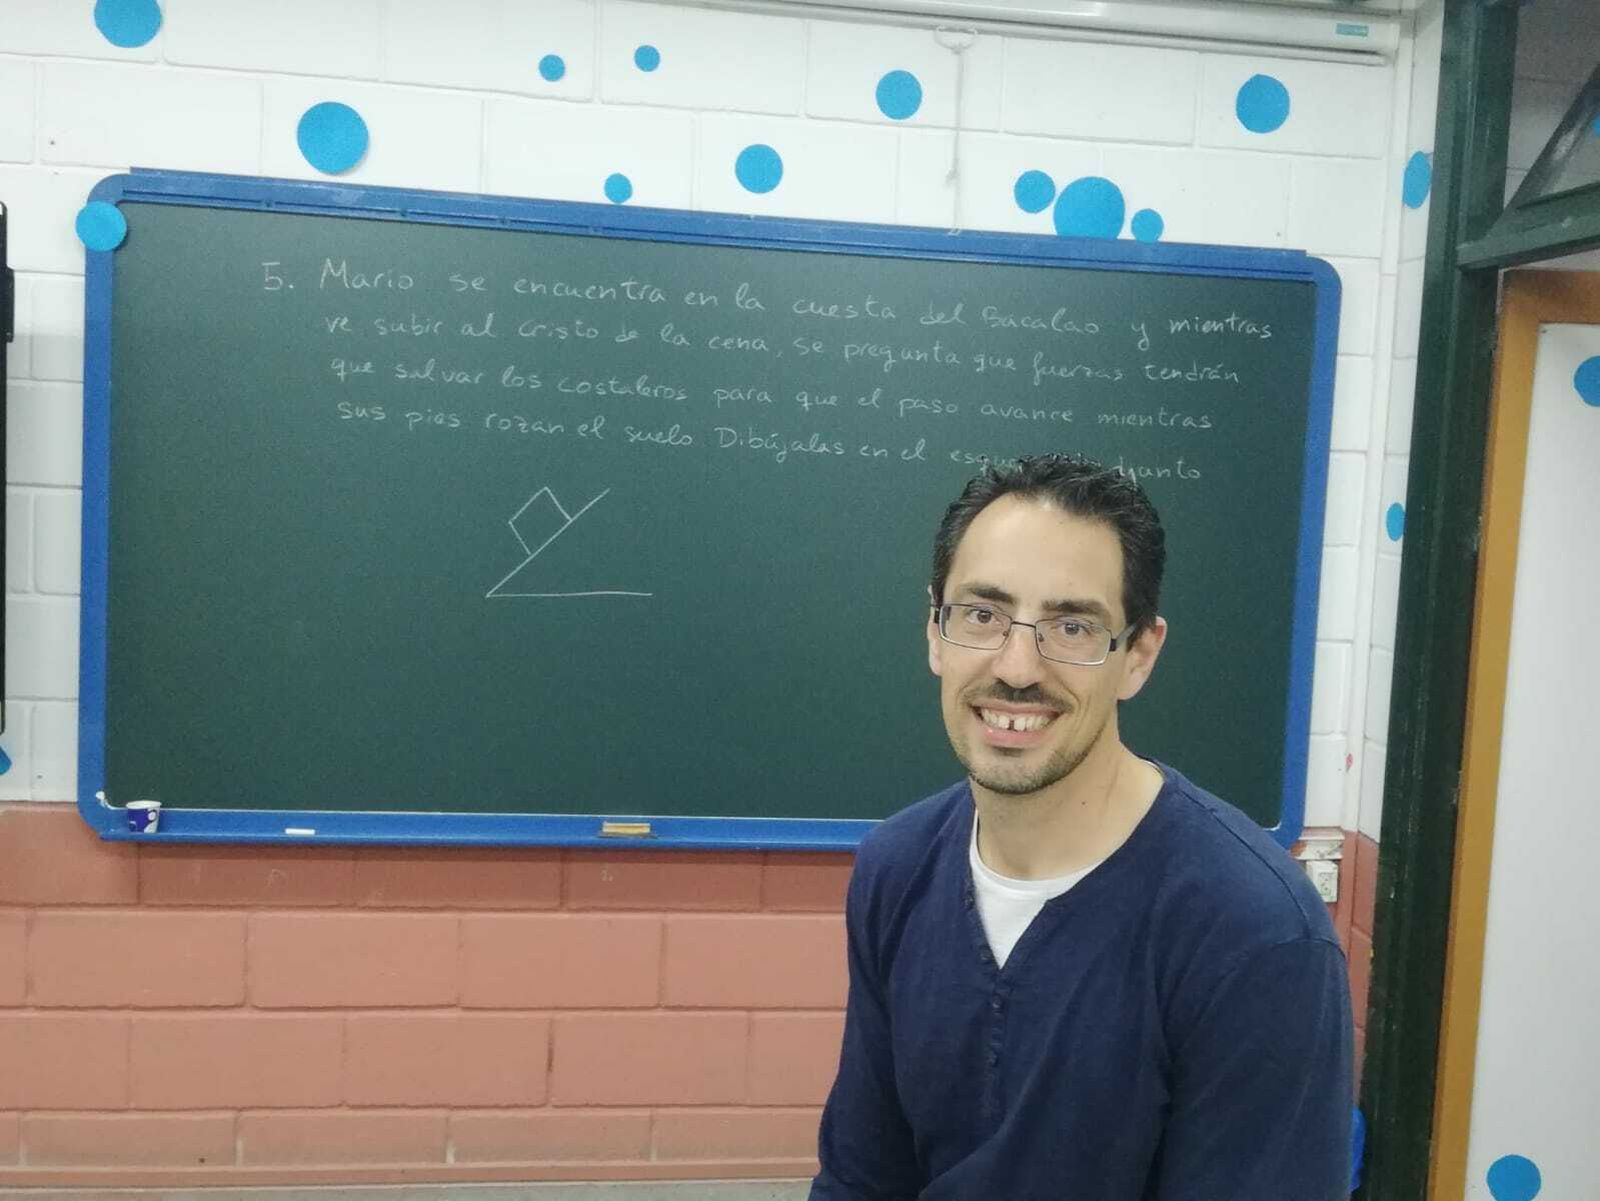 5. Mario se encuentra en la cuesta del Bacalao y mientras
ve subir al cristo de la cena, se pregunta que fuerzas tendrán
que salvar los costaleros para que el paso avance mientras
sus pies rozan el suelo Dibújalas en el